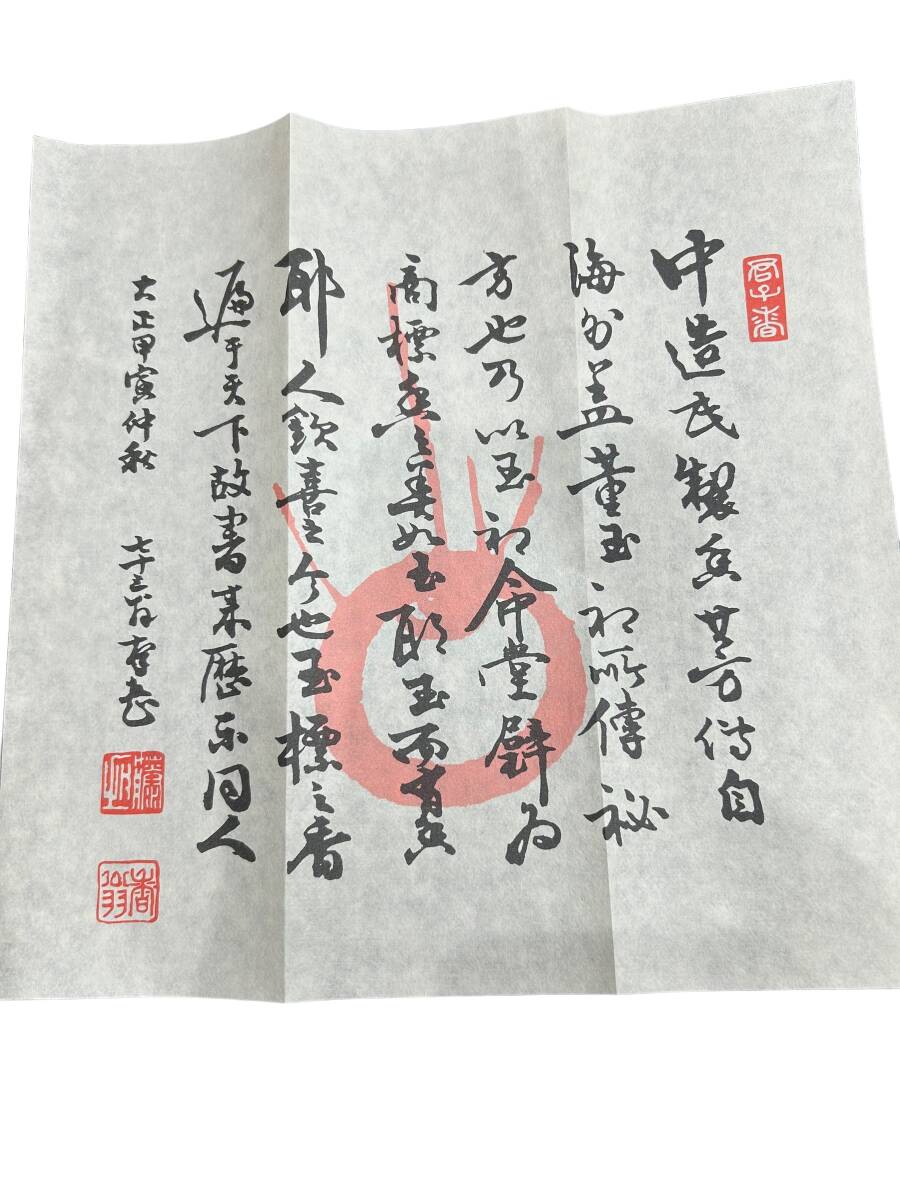 君子香
中造氏製香其方傳自
海外盖董玉初所傳秘
方也乃以玉初命堂璧為
商標香之美如玉耶玉而有香
耶人欽喜之今也玉標之香
遍于天下故書来歴示同人
大正甲寅仲秋 七十三翁
香翁